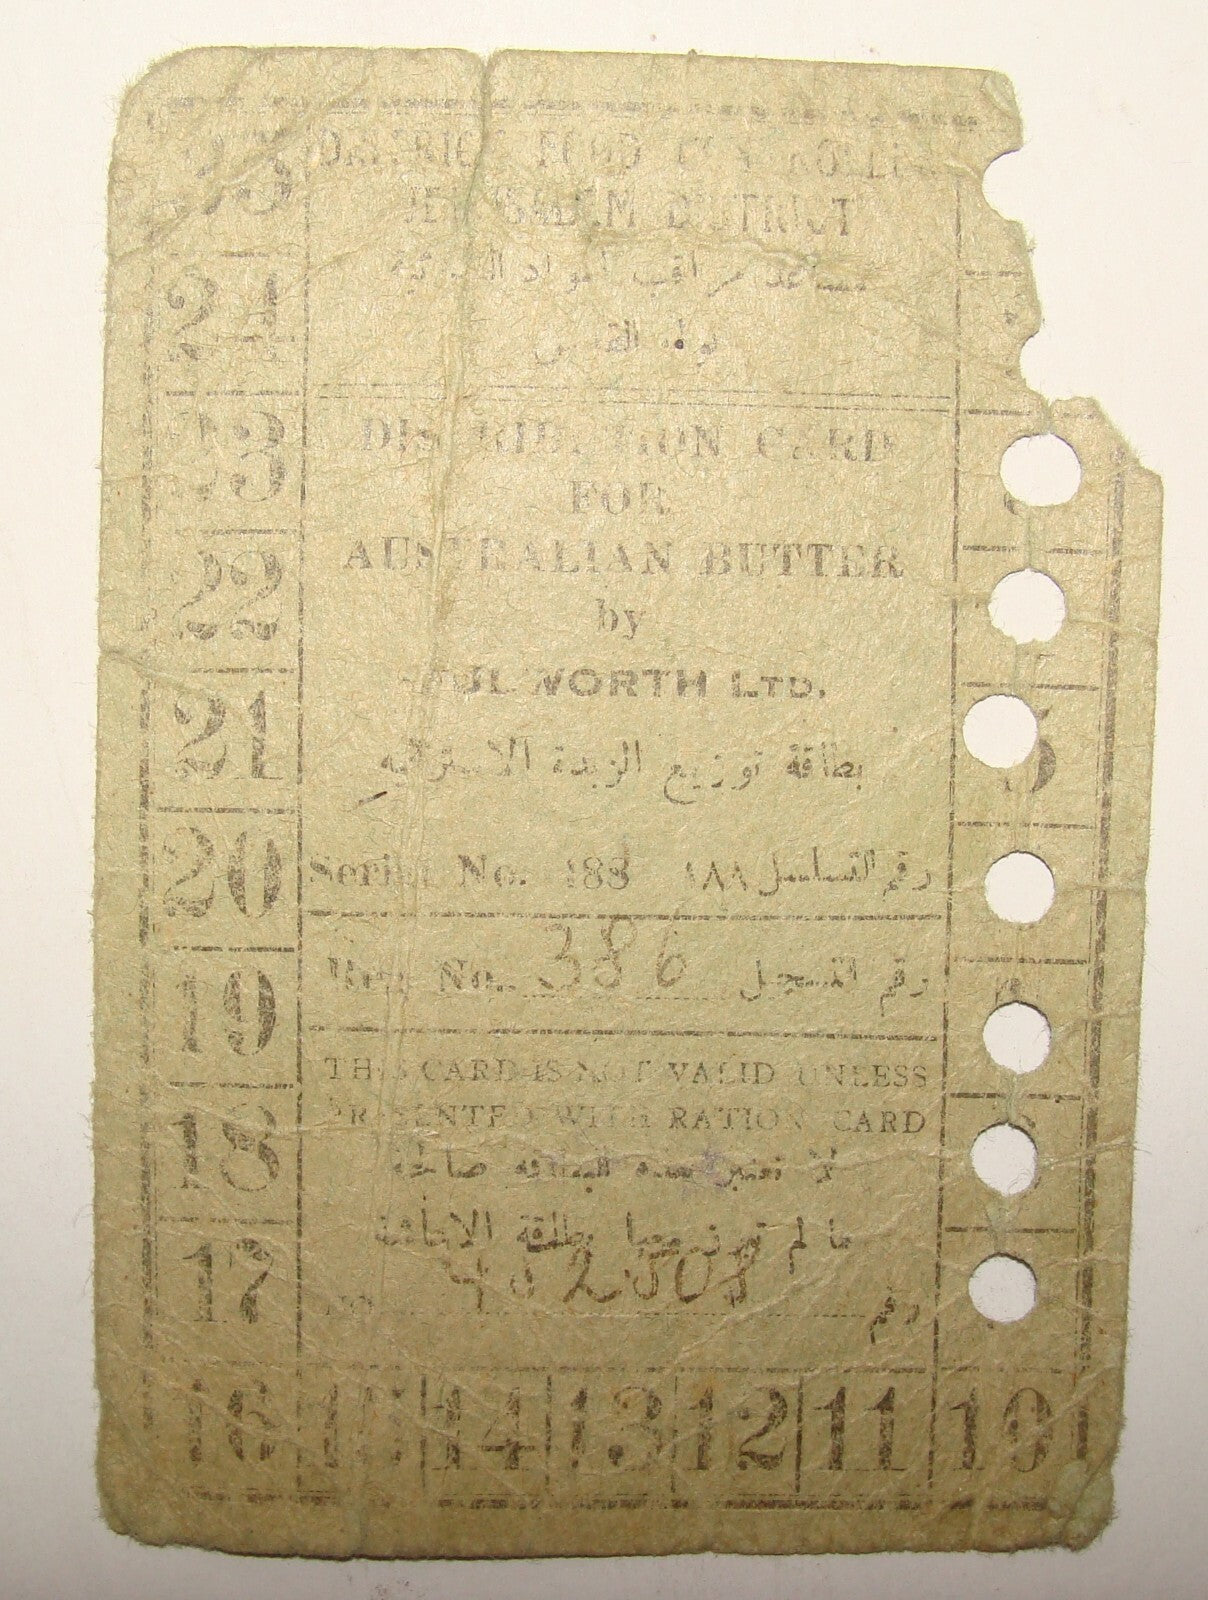 25 DISTRICT FOOD CONTROLLER
JERUSALEM DISTRICT
مساعد مراقب المواد الغذائية
لواء القدس
24
23
DISTRIBUTION CARD
FOR
AUSTRALIAN BUTTER
by
LTD.
22
21
بطاقة توزيع الزبدة الاسترالية
5
20
Serial No. 188 رقم التسلسل ١٨٨
19
Reg No. 386 رقم التسجيل
THIS CARD IS NOT VALID UNLESS
PRESENTED WITH RATION CARD
18
لا تعتبر هذه البطاقة صالحة
ما لم تبرز معها بطاقة الاعاشة
17
NO رقم
16 15 14 13 12 11 10